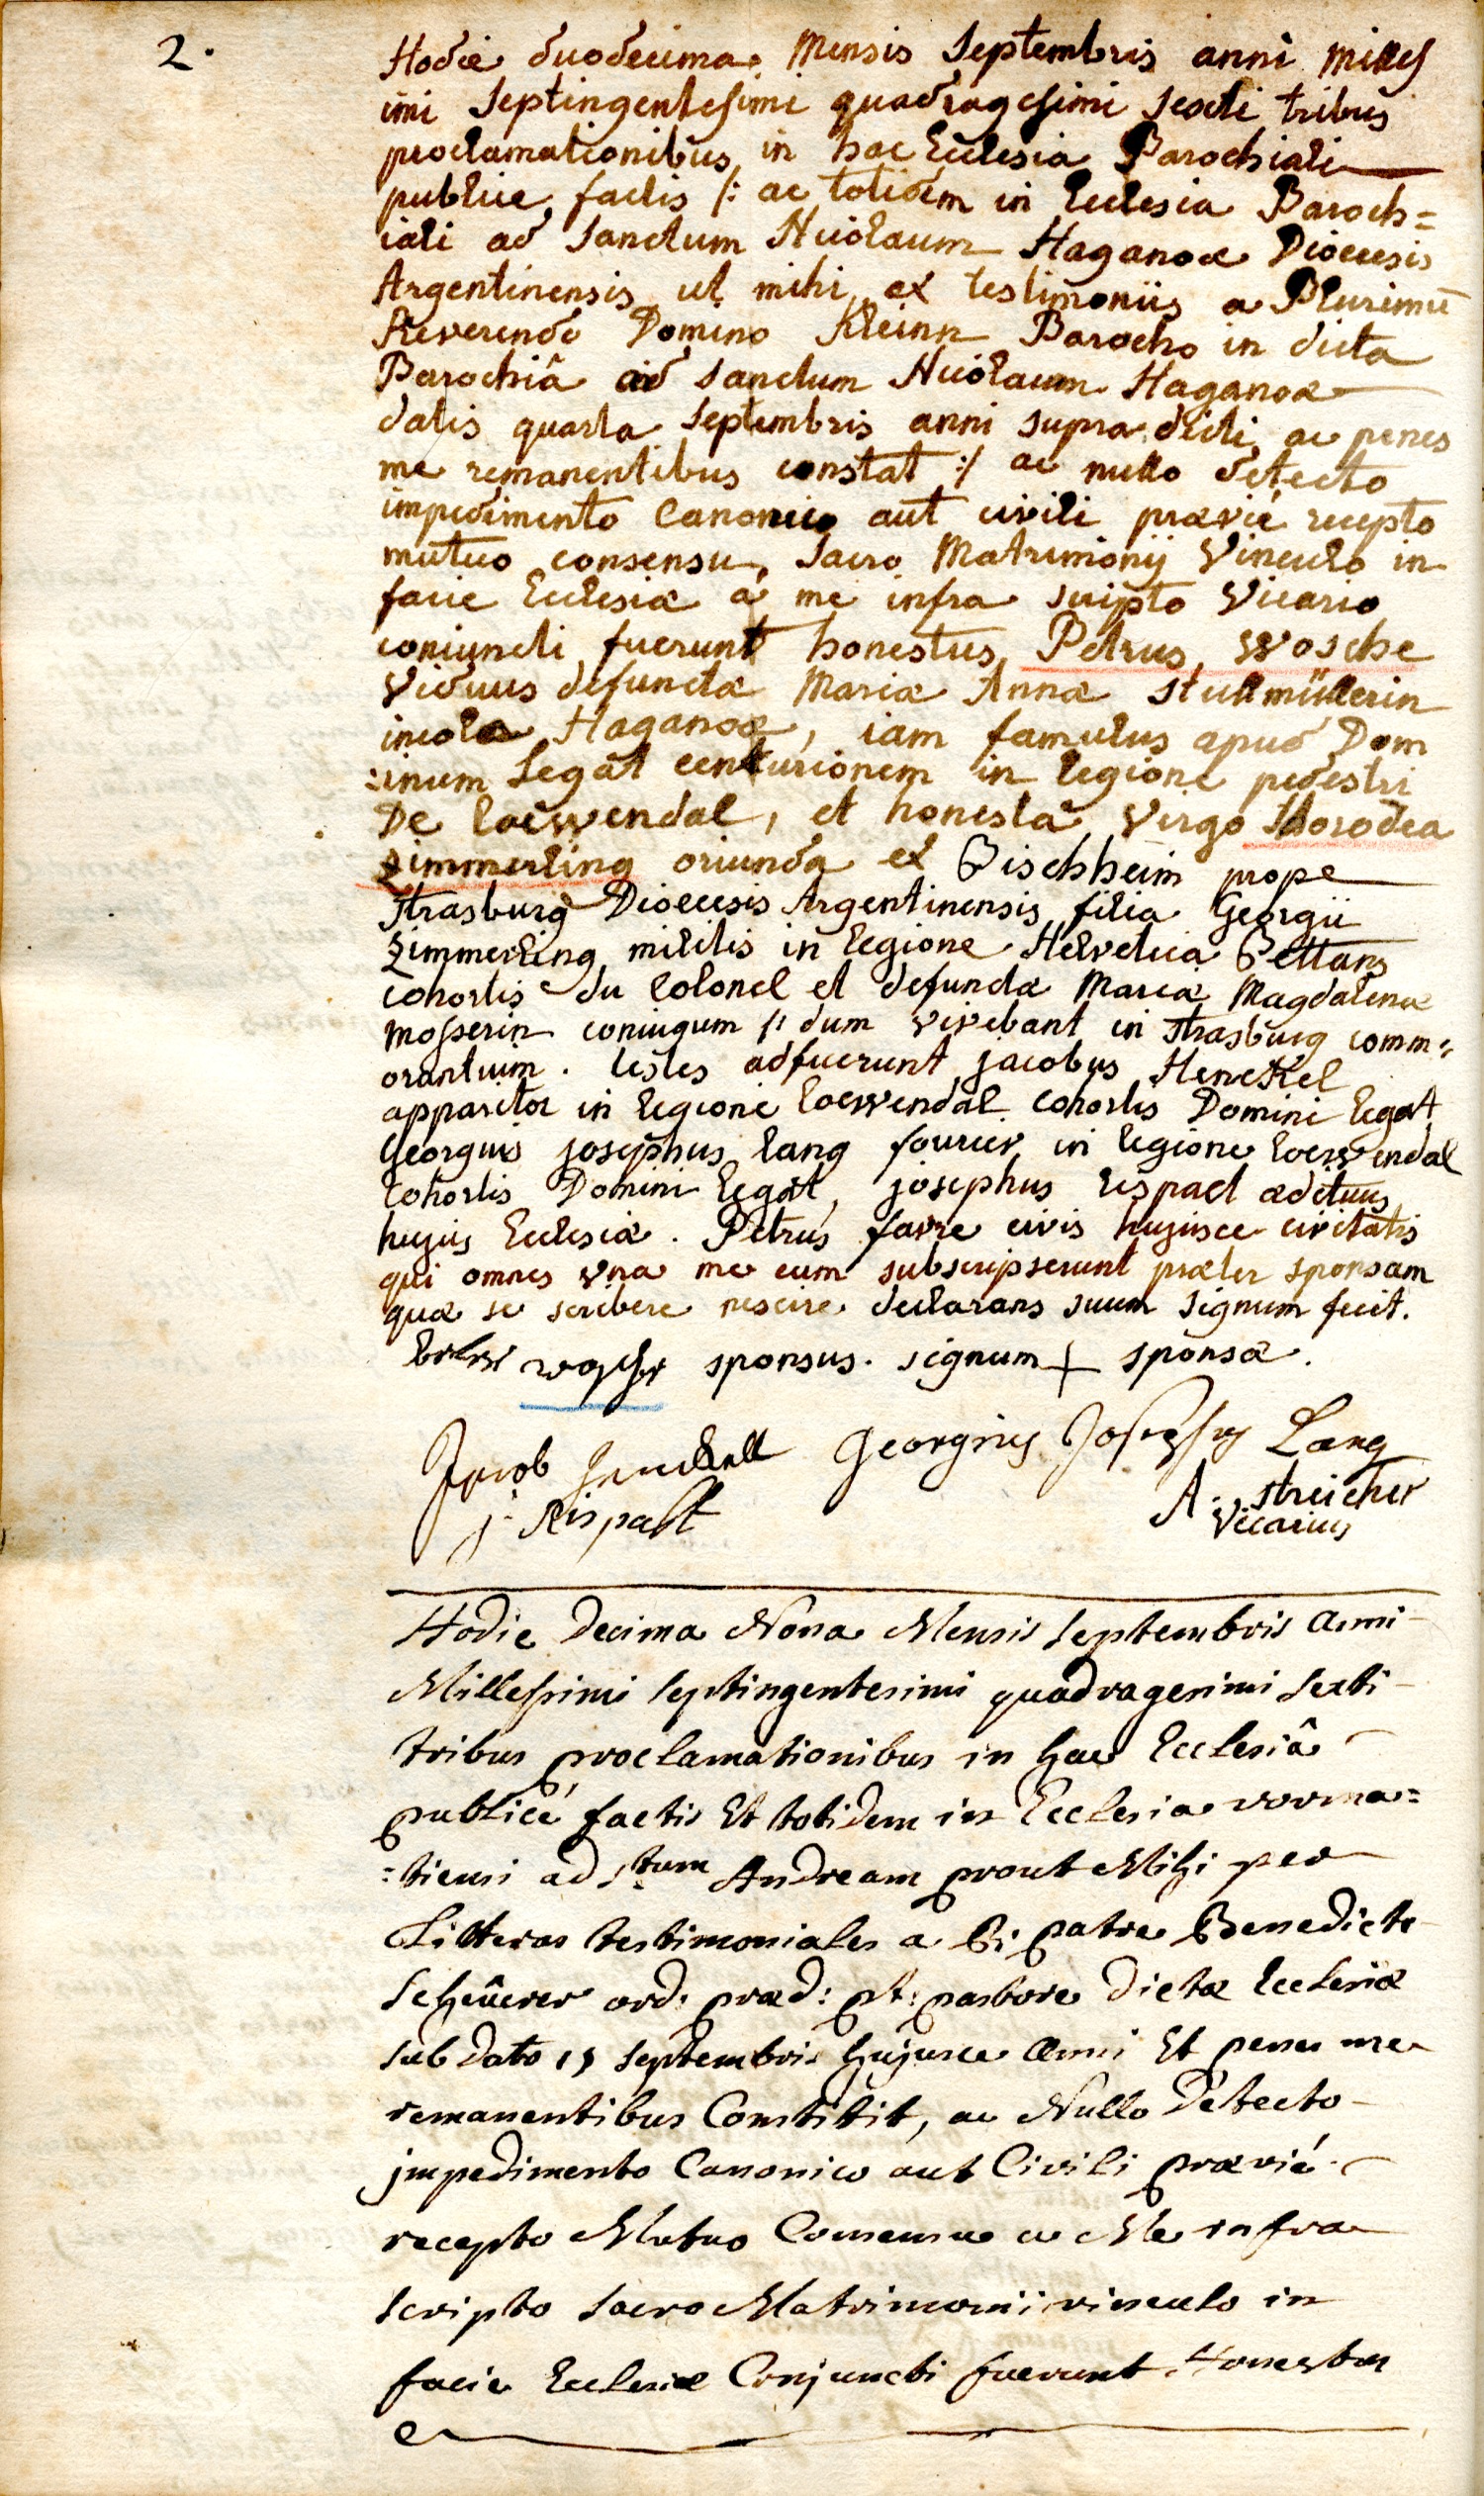 2.
Hodie duodecima Mensis Septembris anni milles
imi Septingentesimi quadragesimi Sexti tribus
proclamationibus in hac Ecclesia Parochiali
publice factis /: ac totidem in Ecclesia Paroch=
iali ad Sanctum Nicolaum Haganoæ Diœcesis
Argentinensis ut mihi ex testimoniis a Plurimū
Reverendo Domino Kleinn Parocho in dicta
Parochiâ ad Sanctum Nicolaum Haganoæ
datis quarta Septembris anni supra dicti ac penes
me remanentibus constat :/ ac nullo detecto
impedimento Canonico aut civili prævie recepto
mutuo consensu, Sacro Matrimonij Vinculo in
facie Ecclesiæ à me infra scripto Vicario
coniuncti fuerunt honestus Petrus Wosche
Viduus defunctæ Mariæ Annæ Stullmüllerin
incola Haganoæ, iam famulus apud Dom
:inum Legat centurionem in legione pedestri
De Loewendal, et honesta Virgo Dorodea
Zimmerling oriunda ex Bischheim prope
Strasburg Diœcesis Argentinensis filia Georgii
Zimmerling militis in legione Helvetica Bettans
cohortis du Colonel et defunctæ Mariæ Magdalenæ
Mosserin coniugum /: dum vivebant in Strasburg comm=
orantium. testes adfuerunt jacobus Henckel
apparitor in legione Loewendal cohortis Domini legat
Georgius josephus Lang fourier in legione Loewendal
Cohortis Domini Legat, josephus Rispact ædituus
hujus Ecclesiæ. Petrus favre civis hujusce civitatis
qui omnes una me cum subscripserunt præter sponsam
quæ se scribere nescire declarans suum signum fecit.
wosche sponsus. signum + sponsæ.
Jacob Henckell Georgius Josephus Lang
j. Rispact A. Streicher
Vicarius
Hodie Decima Nona Mensis Septembris anni
Millessimi septingentesimi quadragesimi sexti
tribus proclamationibus in hac Ecclesiâ
publicé factis Et totidem in Ecclesia worma=
=tiensi ad Stum Andream prout Mihi per
Litteras testimoniales a R: patre Benedicto
Scheüerer ord: præd: pt: pastore Dictæ Ecclesiæ
sub Dato 15 Septembris hujusce Anni Et penes me
remanentibus Constitit, ac Nullo Detecto
jmpedimento Canonico aut Civili prævié
recepto Mutuo Consensu a Me infra
scripto Sacro Matrimonii vinculo in
facie Ecclesiæ Conjuncti fuerunt Honestus